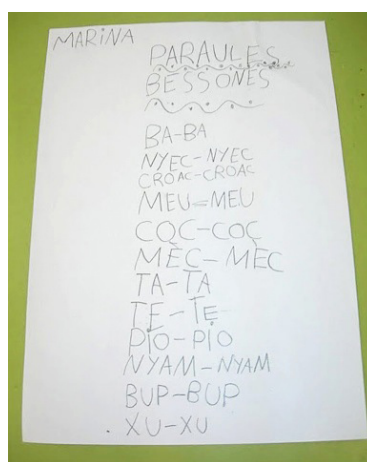 MARINA
PARAULES
BESSONES
BA-BA
NYEC-NYEC
CROAC-CROAC
MEU=MEU
COC-COC
MÈC-MÈC
TA-TA
TE-TE
PIO-PIO
NYAM-NYAM
BUP-BUP
XU-XU